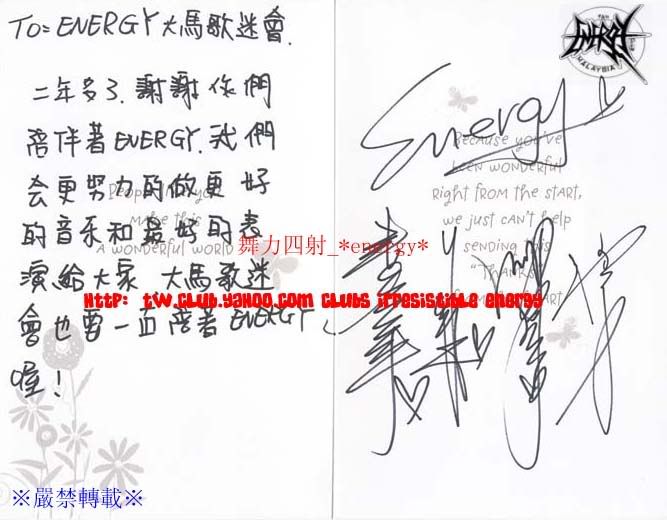 TO=ENERGY大馬歌迷會.
二年多了.謝謝你們
陪伴著ENERGY.我們
会更努力的做更好
的音乐和最好的表
演給大家 大馬歌迷
會也要一直陪著ENERGY
喔!
People like you
make this
A WONDERFUL WORLD
ENERGY
MALAYSIA
Energy
Because you've
been wonderful
Right from the start,
we just can't help
sending this
"Thanks
舞力四射_*energy*
Http: tw.club.yahoo.com clubs irresistible energy
※嚴禁轉載※